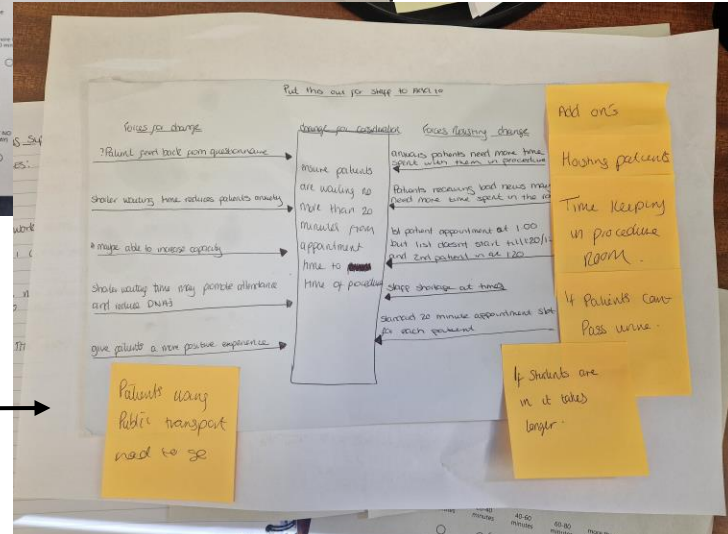 Put this out for staff to Add to
Forces for change
Change for Consideration
Forces Resisting change
?Patient feed back from questionnaire
shorter waiting time reduces patients anxiety
* maybe able to increase capacity
shorter waiting time may promote attendance
and reduce DNA's
give patients a more positive experience
Insure patients
are waiting no
more than 20
minutes from
appointment
time to
time of procedure
anxious patients need more time
spent with them in procedure
Patients receiving bad news may
need more time spent in the
1st patient appointment at 1.00
but list doesnt start till
and 2nd patient in at 1.20
staff shortage at times
standard 20 minute appointment slot
for each patient
Add on's
Hoisting patients
Time Keeping
in procedure
Room.
if Patients can't
Pass urine.
if Students are
in it takes
longer.
Patients using
Public transport
need to
40-60
minutes
60-80
minutes